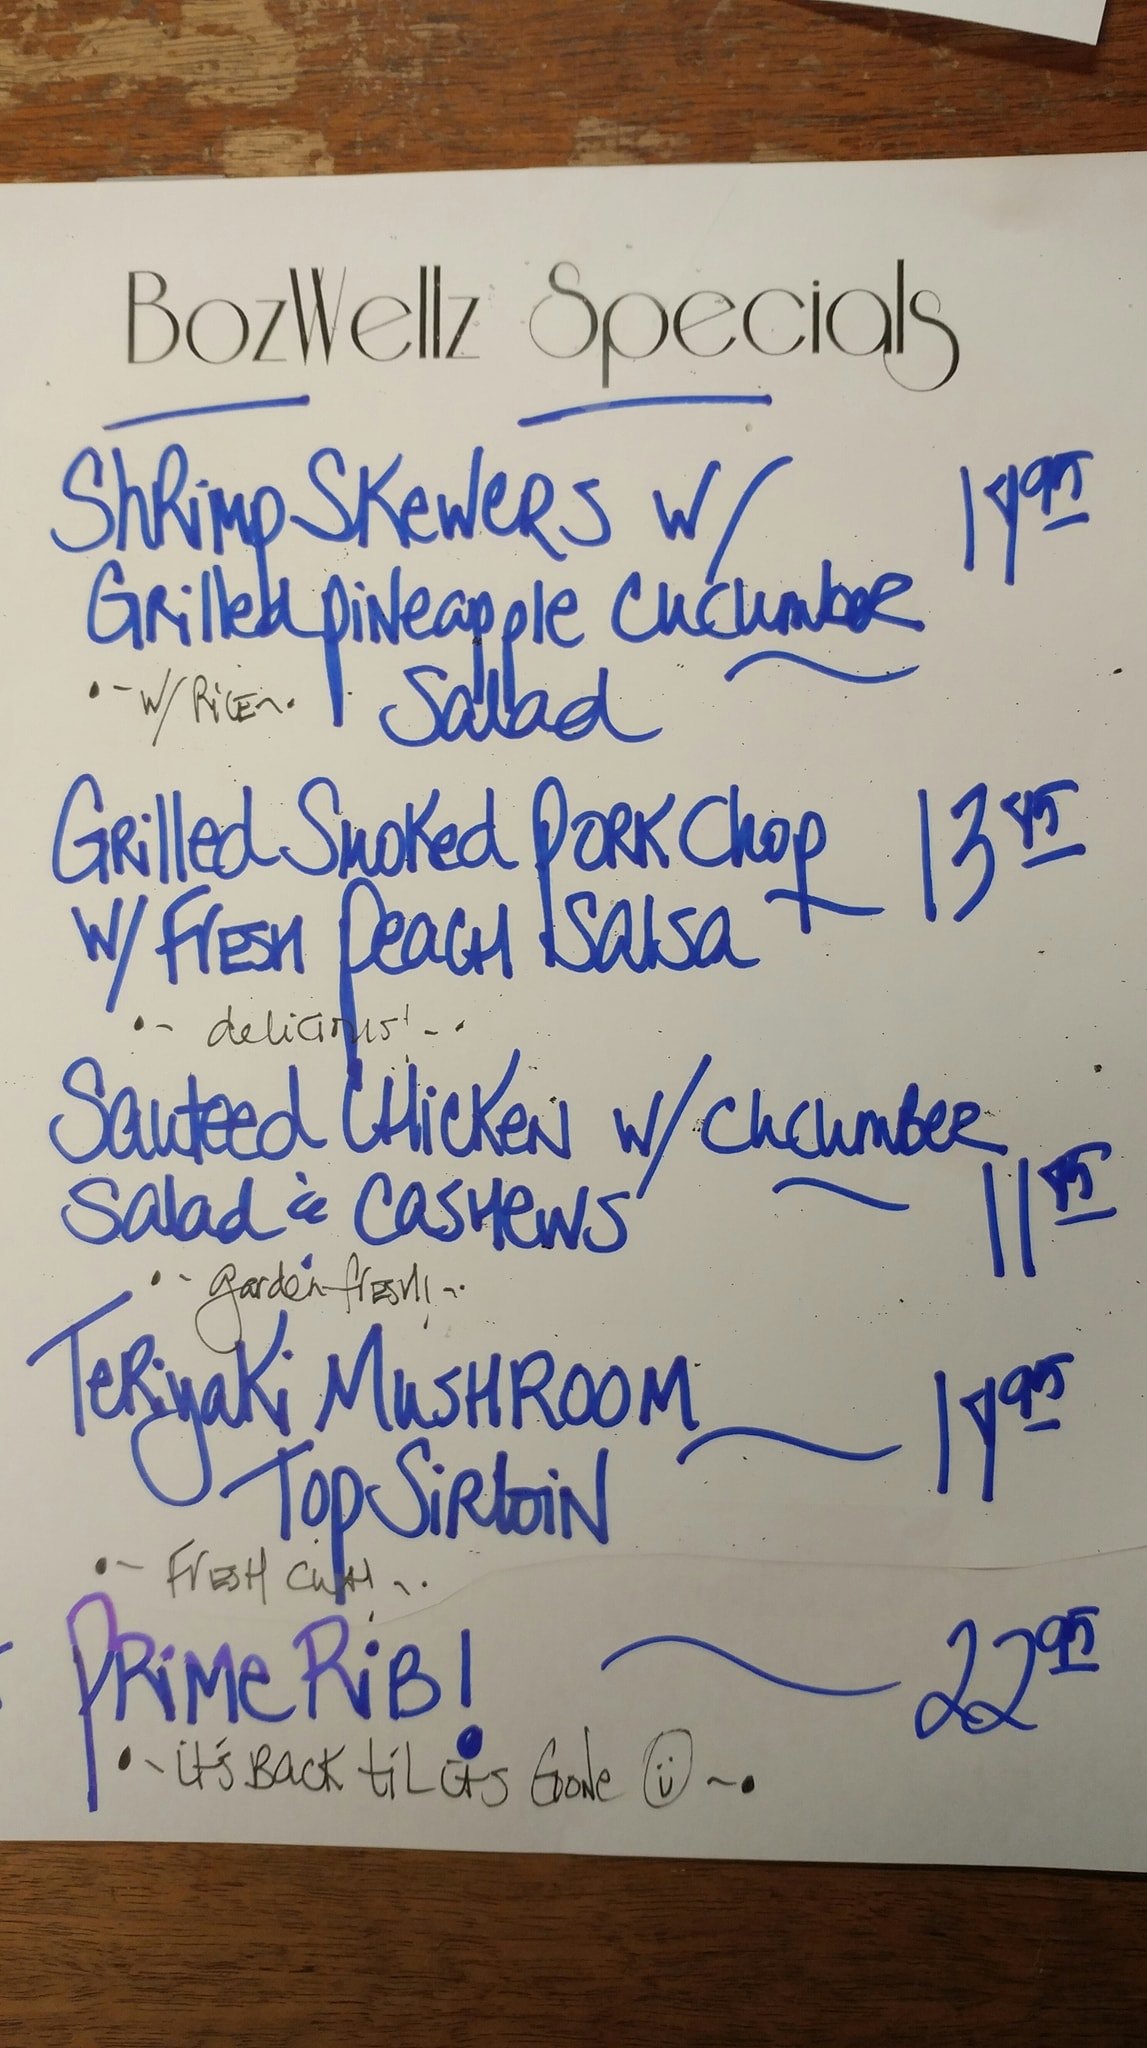 BozWellz Specials
Shrimp Skewers w/ 14⁹⁵
Grilled pineapple cucumber
Salad
•~ w/ Rice ~•
Grilled Smoked Pork Chop 13⁹⁵
w/ Fresh Peach Salsa
•~ delicious! ~•
Sauteed Chicken w/ cucumber
Salad & Cashews 11⁹⁵
•~ garden fresh! ~•
Teriyaki Mushroom 14⁹⁵
Top Sirloin
•~ Fresh cut! ~•
Prime Rib! 22⁹⁵
•~ it's Back til it's Gone ☺ ~•